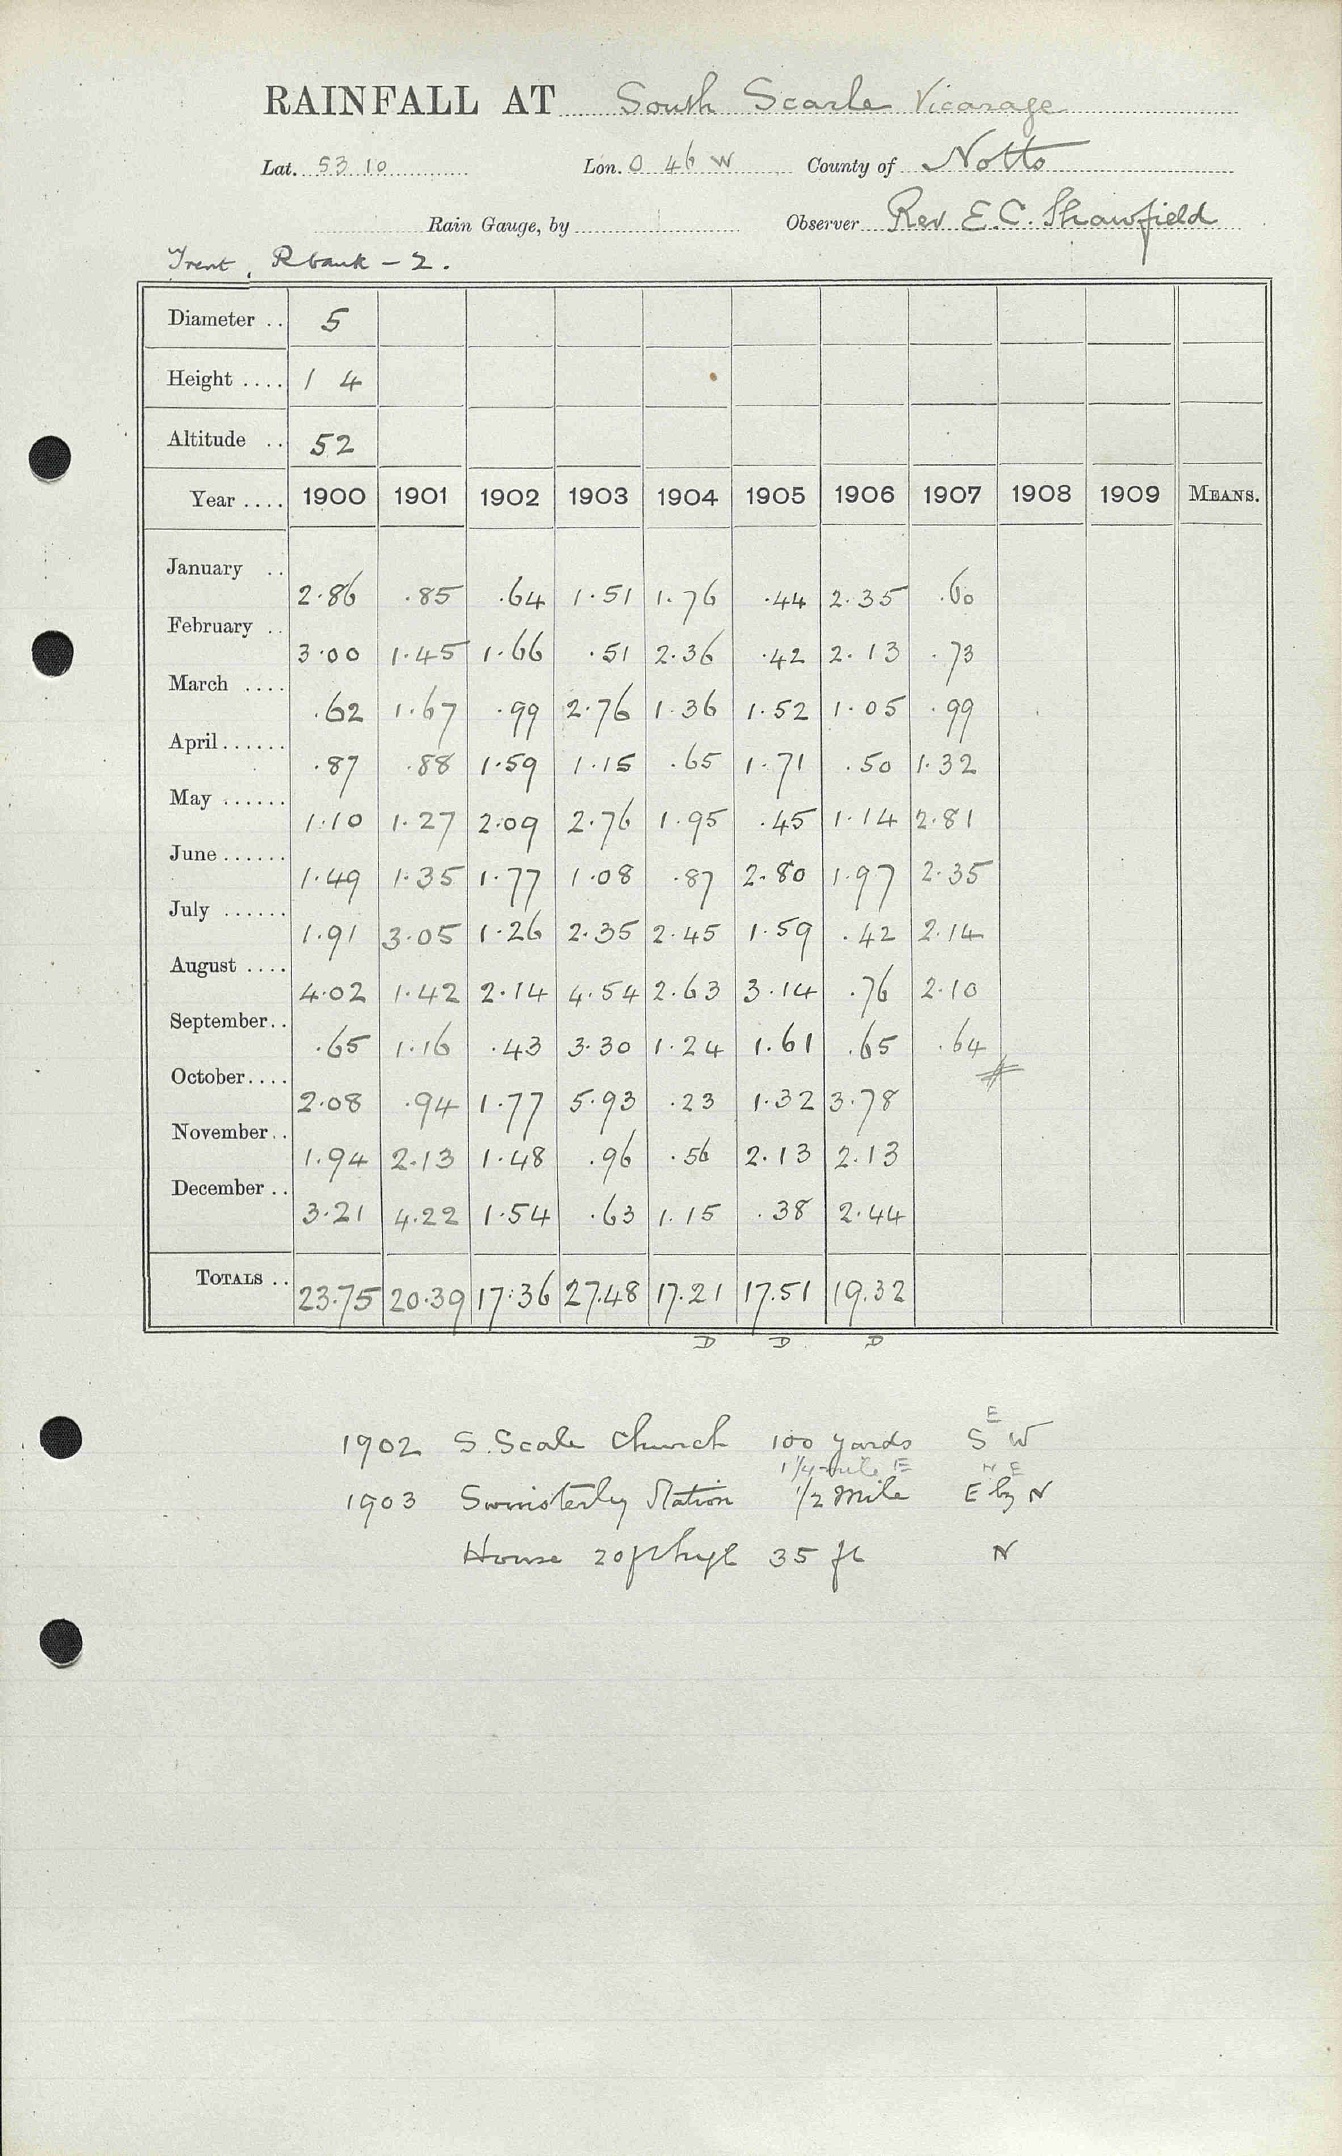 RAINFALL AT South Scarle Vicarage
Lat. 53 10 Lon. 0 46 W County of Notts
Rain Gauge, by Observer Rev E.C. Shawfield
Trent, R bank - 2.
Diameter .. 5
Height .... 1 4
Altitude .. 52
Year .... 1900 1901 1902 1903 1904 1905 1906 1907 1908 1909 MEANS.
January .. 2.86 .85 .64 1.51 1.76 .44 2.35 .60
February .. 3.00 1.45 1.66 .51 2.36 .42 2.13 .73
March .... .62 1.67 .99 2.76 1.36 1.52 1.05 .99
April ...... .87 .88 1.59 1.15 .65 1.71 .50 1.32
May ...... 1.10 1.27 2.09 2.76 1.95 .45 1.14 2.81
June ...... 1.49 1.35 1.77 1.08 .87 2.80 1.97 2.35
July ...... 1.91 3.05 1.26 2.35 2.45 1.59 .42 2.14
August .... 4.02 1.42 2.14 4.54 2.63 3.14 .76 2.10
September .. .65 1.16 .43 3.30 1.24 1.61 .65 .64
October .... 2.08 .94 1.77 5.93 .23 1.32 3.78
November .. 1.94 2.13 1.48 .96 .56 2.13 2.13
December .. 3.21 4.22 1.54 .63 1.15 .38 2.44
TOTALS .. 23.75 20.39 17.36 27.48 17.21 17.51 19.32
D D D
E
1902 S. Scale Church 100 yards S W
1 1/4 mile E N E
1903 Swinsterly Station 1/2 Mile E by N
House 20ft high 35 ft N